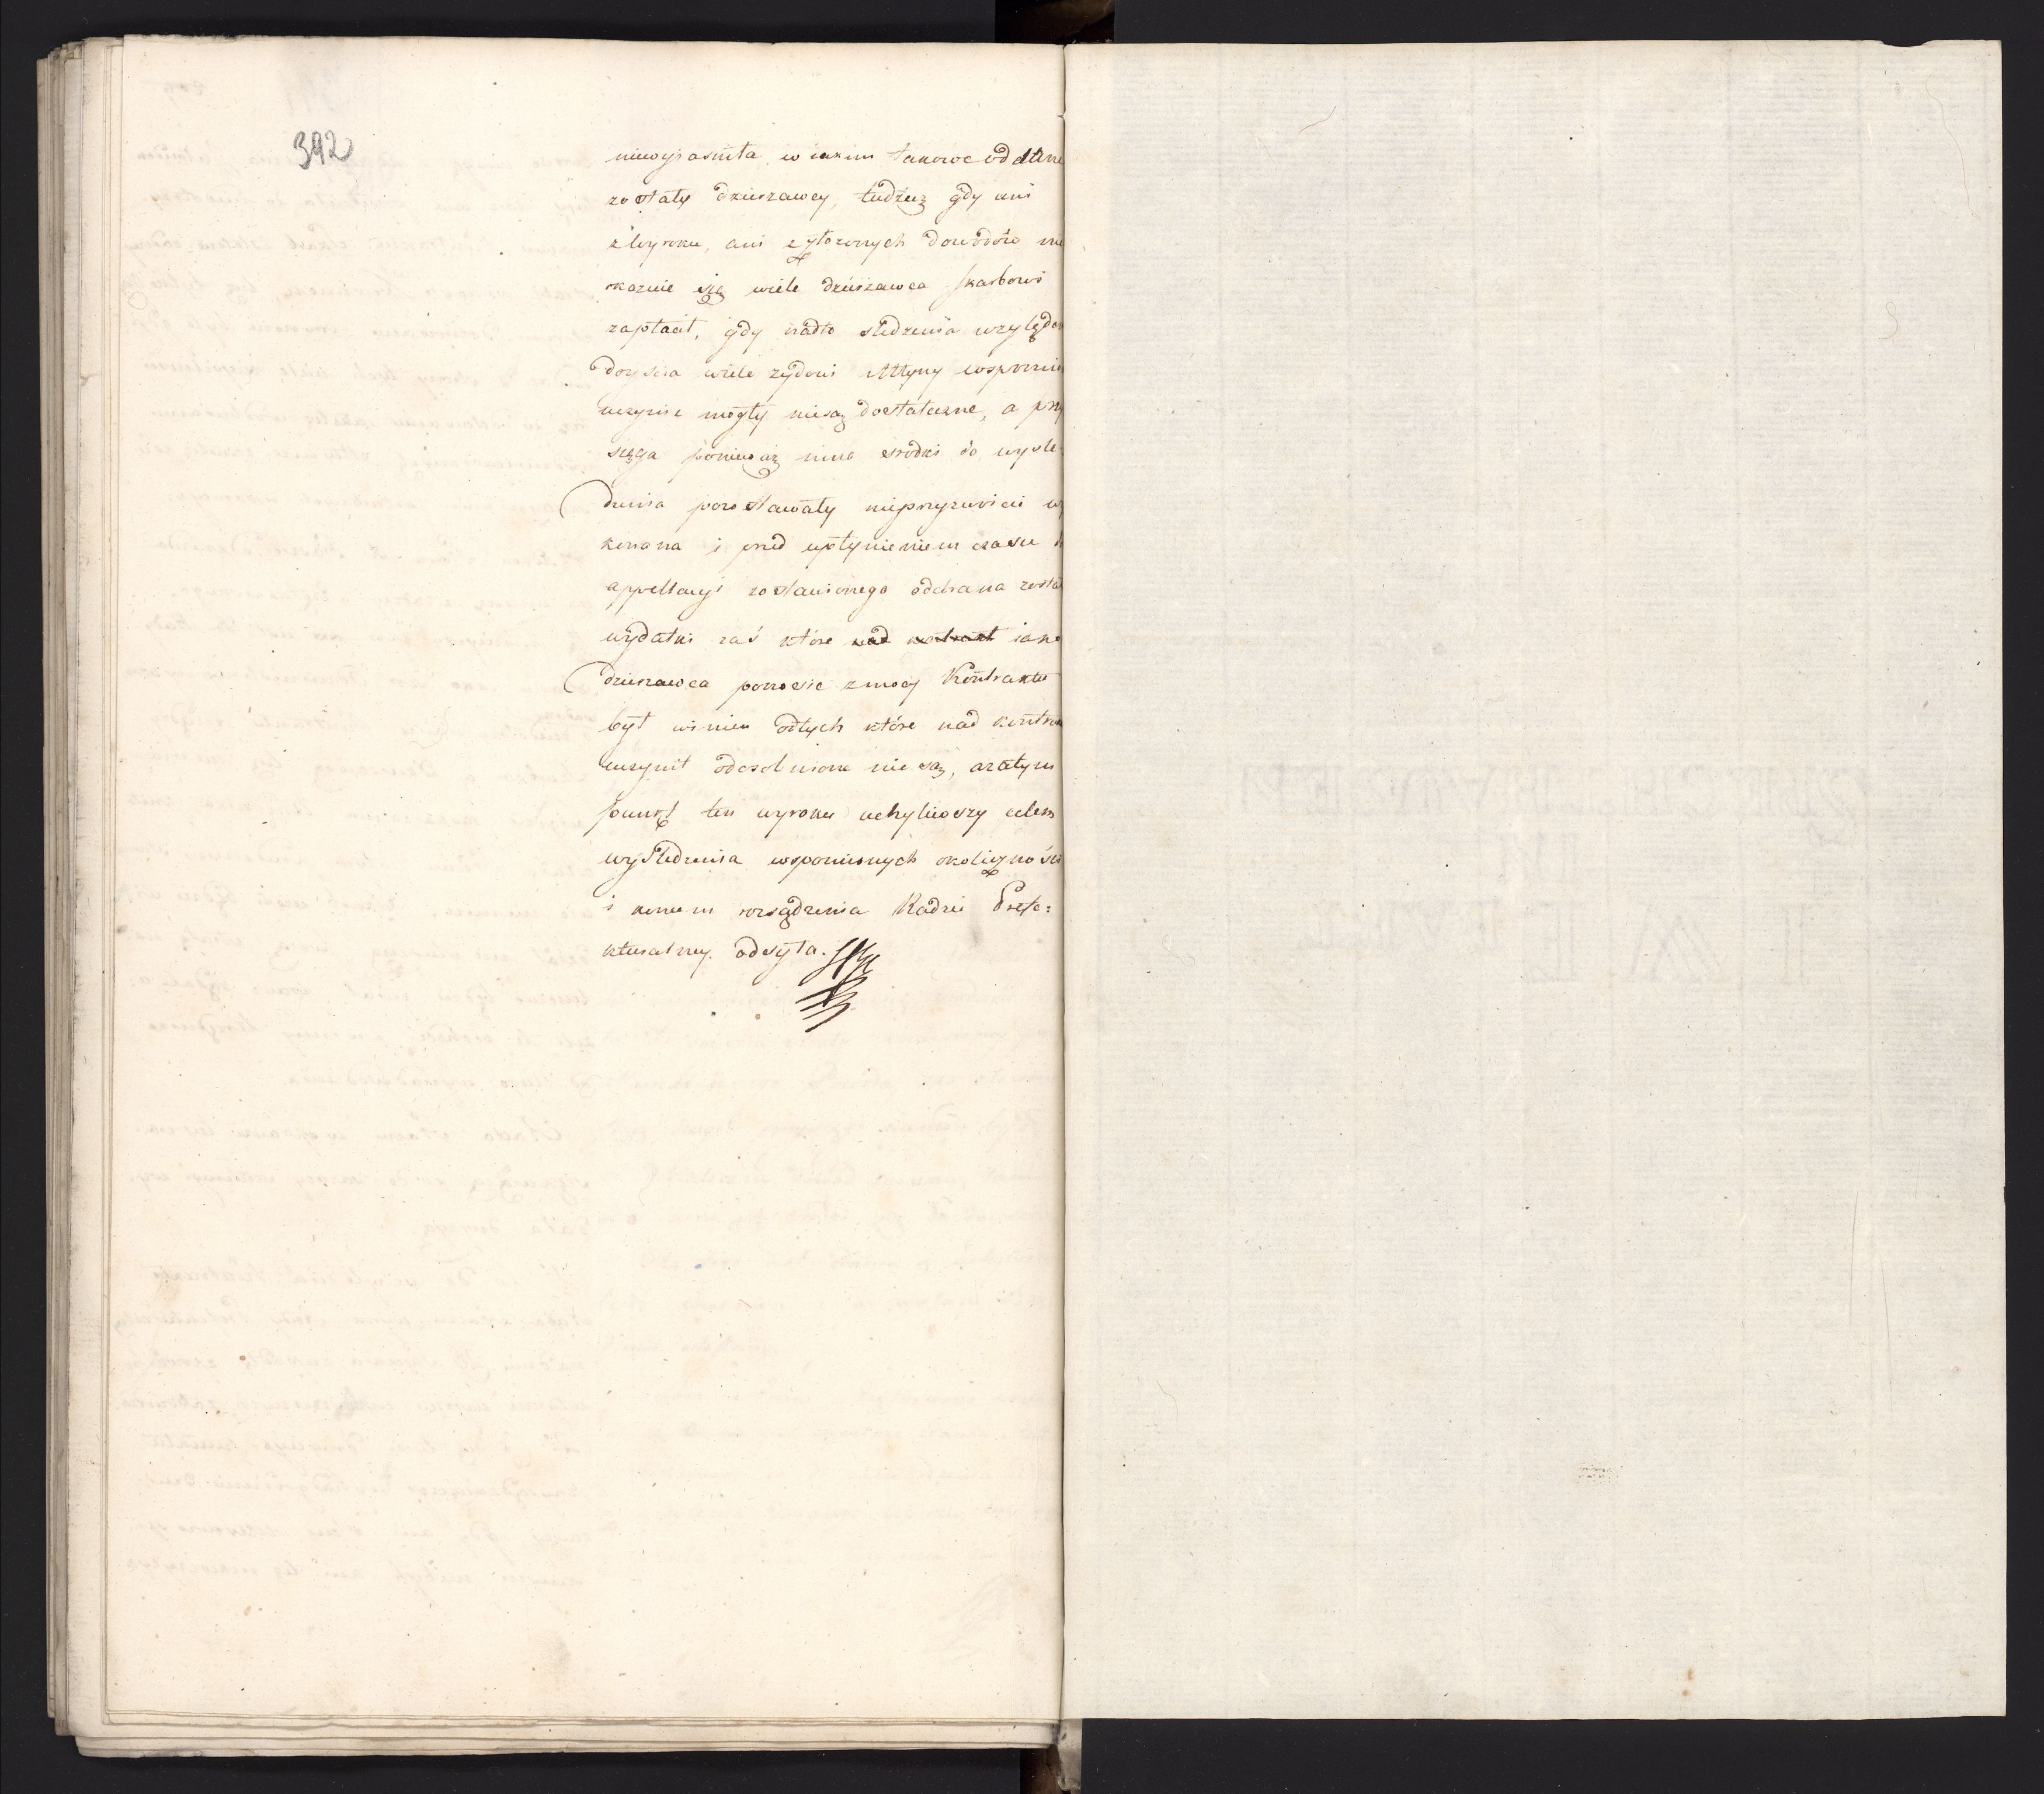 392
niewyiasniła, w iakim takowe oddane
zostały dzierzawcy, tudzież gdy ani
z wyroku, ani złożonych dowodów nie
okazuie się wiele dzierzawca skarbowi
zapłacił, gdy nadto sledzenia względ
doyscia wiele rządowi Młyny wspomnio
uczynić mogły niesą dostateczne, a przy
sięga ponieważ inne srodki do wysle-
dzenia pozostawały nieprzyzwoicie wy
konana i przed upłynieniem czasu d
appellacyi zostawionego odebrana zosta
wydatki zaś które nad kontrakt iako
dzierzawca ponosić z mocy Kontraktu
był winien odtych które nad kontra
uczynił odosobnione nie są, azatym
punkt ten wyroku uchyliwszy celem
wyśledzenia wspomnionych okoliczności
i koncem rozsądzenia Radzie Prefe=
kturalney odsyła.